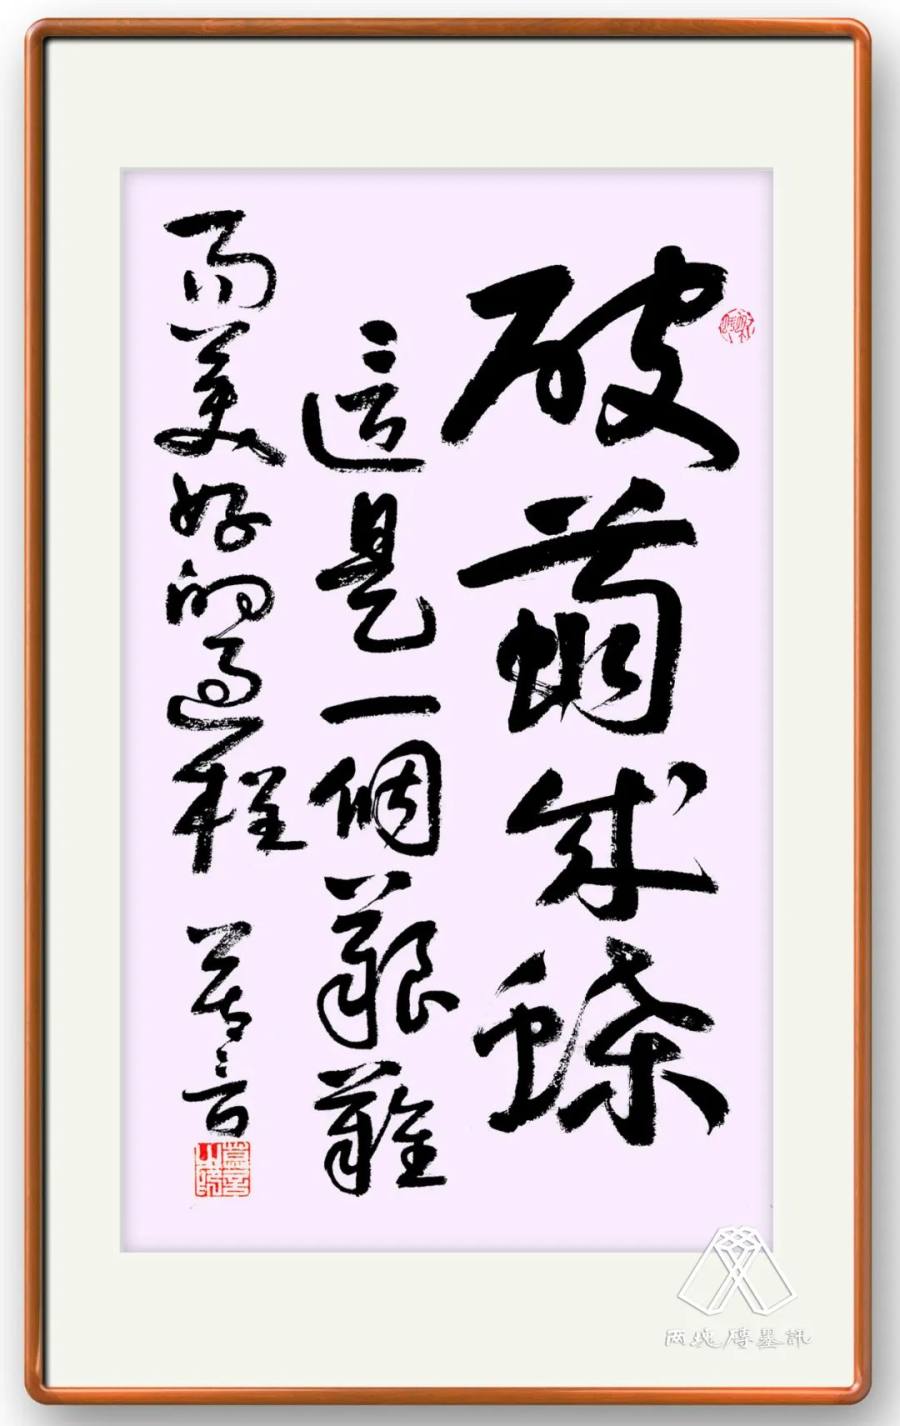 破繭成蝶
這是一個艱難
而美好的過程
兩塊磚墨訊